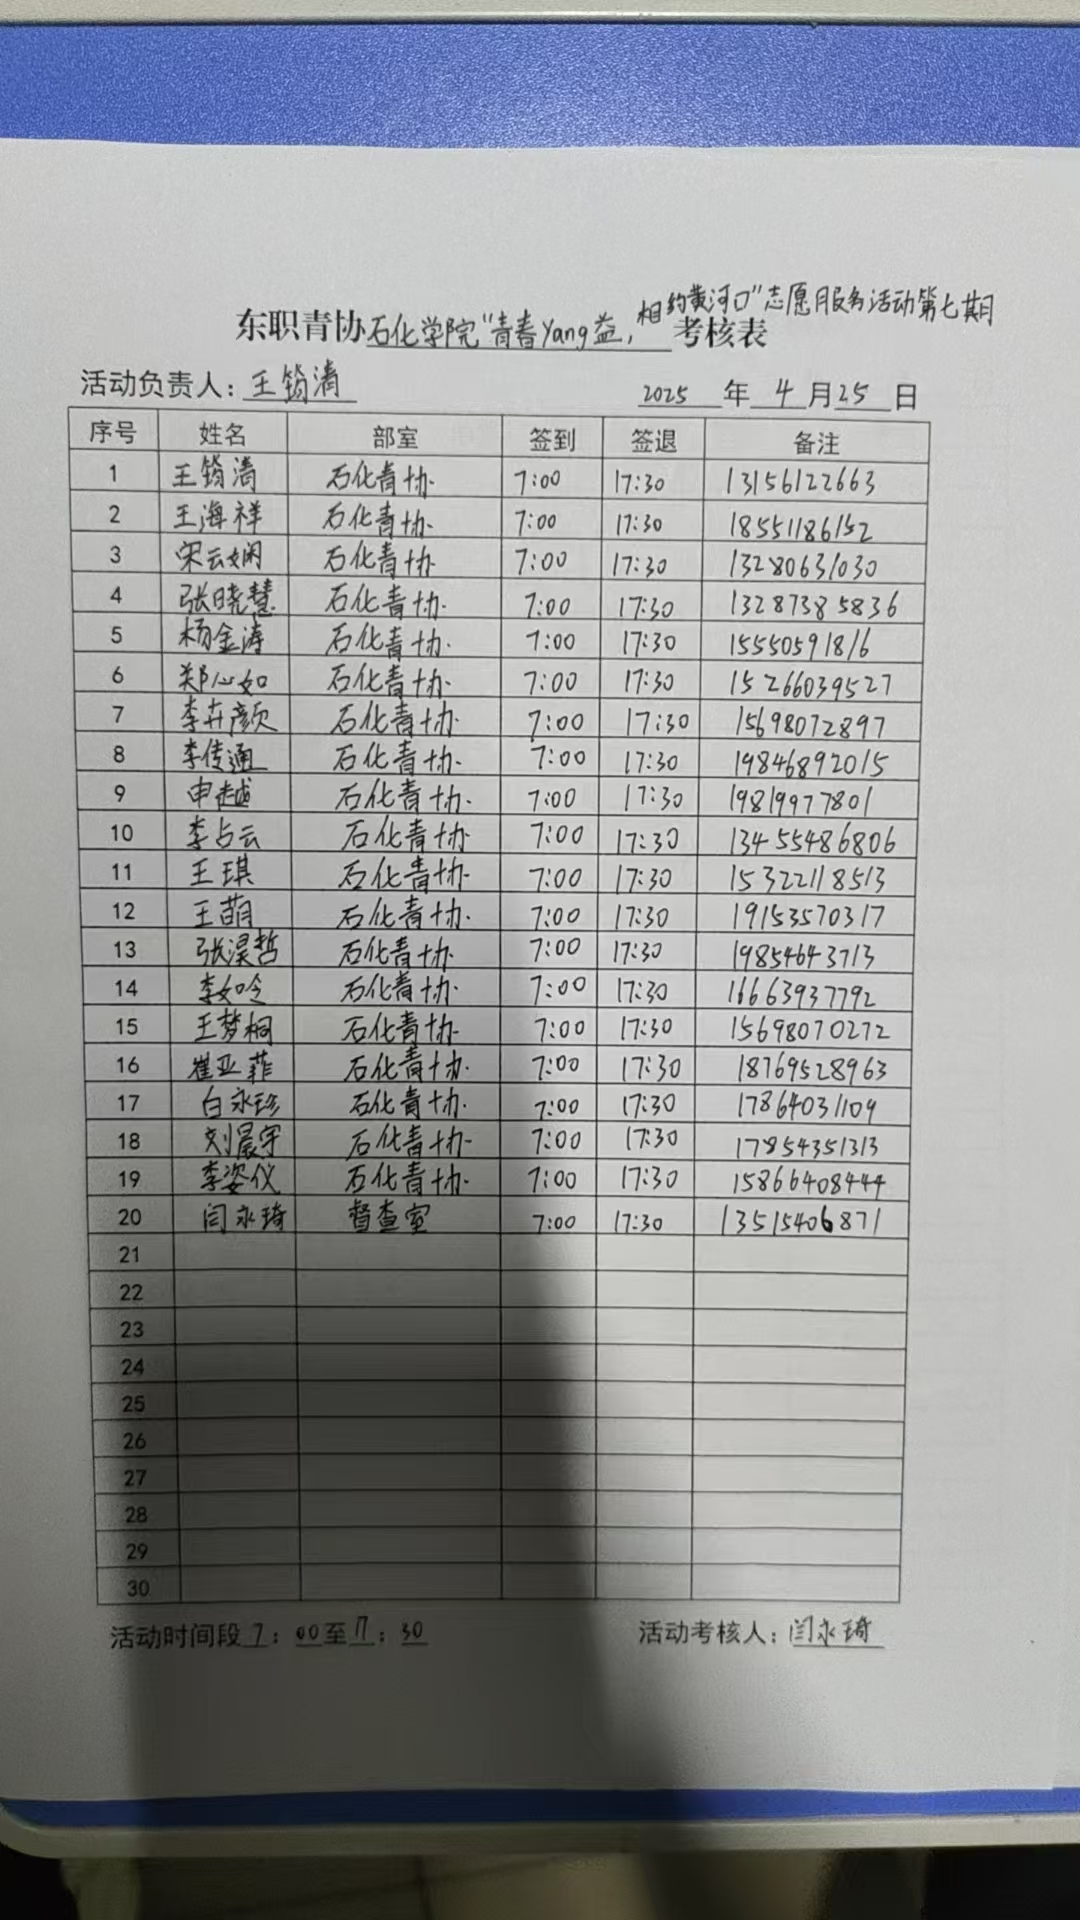 相约黄河口"志愿服务活动第七期
东职青协石化学院"青春Yang益, 考核表
活动负责人: 王筠清 2025 年 4 月 25 日
序号 姓名 部室 签到 签退 备注
1 王筠清 石化青协 7:00 17:30 13156122663
2 王海祥 石化青协 7:00 17:30 18551186152
3 宋云娴 石化青协 7:00 17:30 13280631030
4 张晓慧 石化青协 7:00 17:30 13287385836
5 杨金涛 石化青协 7:00 17:30 15550591816
6 郑心如 石化青协 7:00 17:30 15266039527
7 李卉颜 石化青协 7:00 17:30 15698072897
8 李传通 石化青协 7:00 17:30 19846892015
9 申越 石化青协 7:00 17:30 19819977801
10 李占云 石化青协 7:00 17:30 13455486806
11 王琪 石化青协 7:00 17:30 15322118513
12 王萌 石化青协 7:00 17:30 19153570317
13 张淏哲 石化青协 7:00 17:30 19854643713
14 李如令 石化青协 7:00 17:30 16663937792
15 王梦桐 石化青协 7:00 17:30 15698070272
16 崔亚菲 石化青协 7:00 17:30 18769528963
17 白永珍 石化青协 7:00 17:30 17864031109
18 刘晨宇 石化青协 7:00 17:30 17854351313
19 李姿仪 石化青协 7:00 17:30 15866408444
20 闫永琦 督查室 7:00 17:30 13515406871
21
22
23
24
25
26
27
28
29
30
活动时间段 7: 00至17: 30 活动考核人: 闫永琦